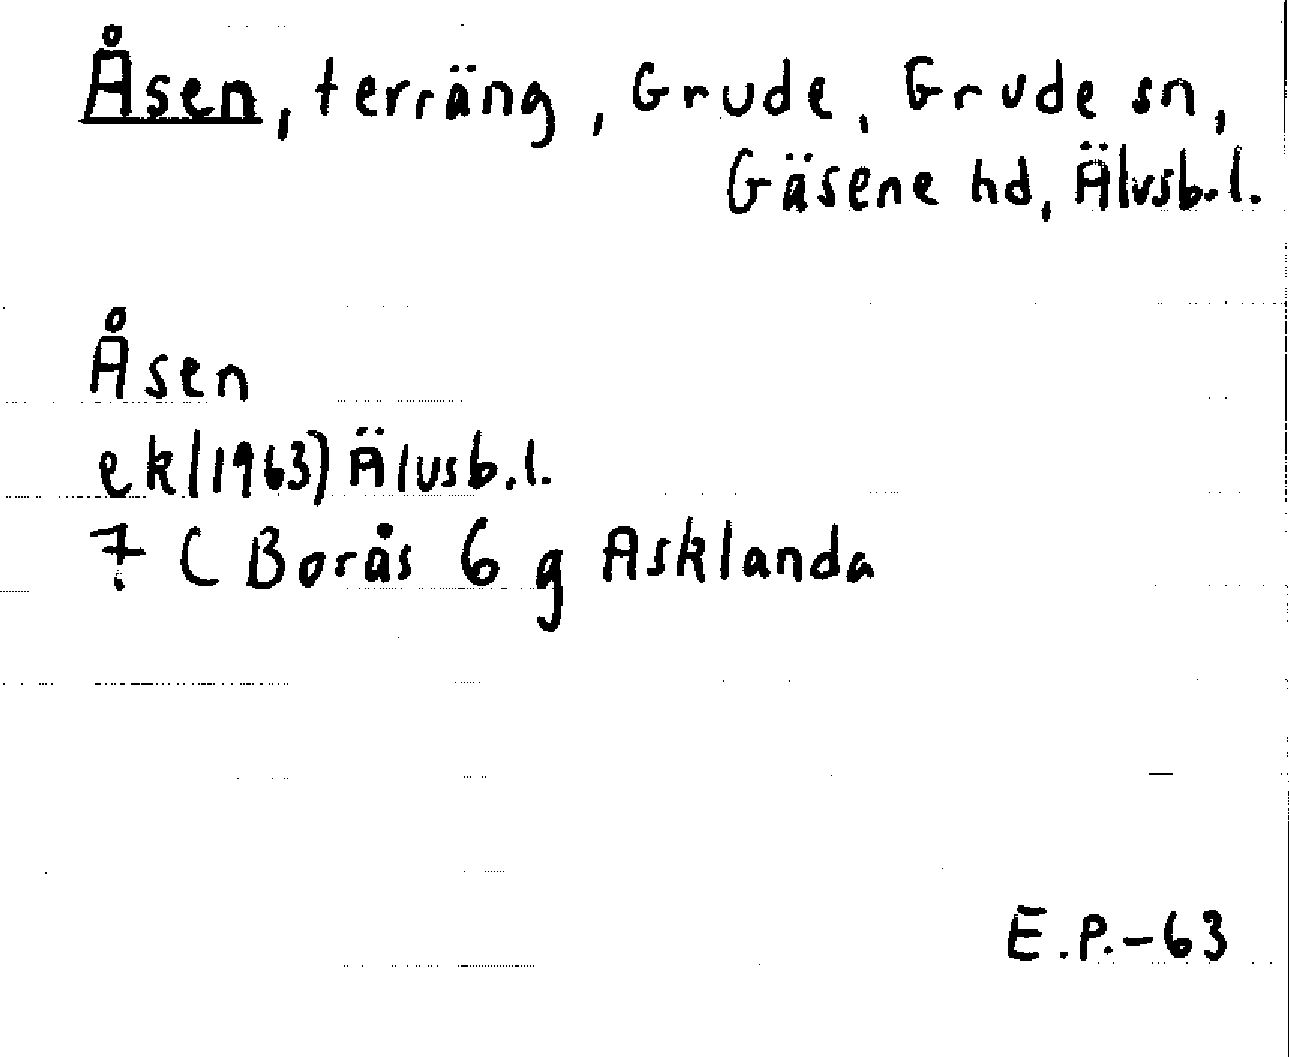 Åsen, terräng, Grude, Grude sn,
Gäsene hd, Älvsb.l.
Åsen
ek(1963) Älvsb.l.
7 C Borås 6 g Asklanda
E.P.-63